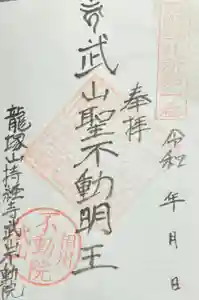 奉拝
令和 年 月 日
武山聖不動明王
不動院
龍塚山持経寺武山不動院